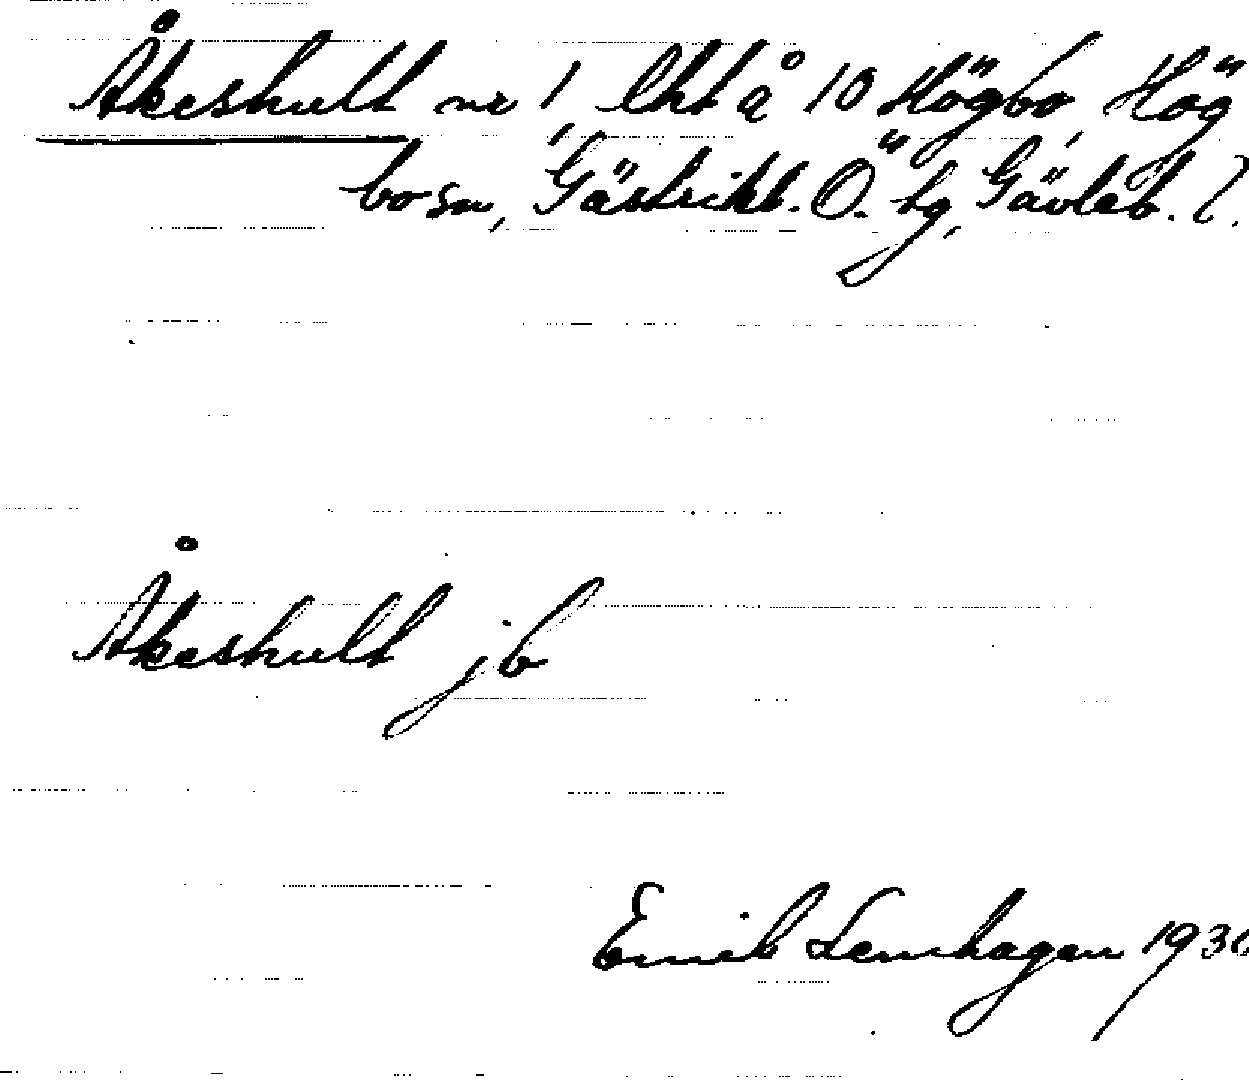 Åkeshult nr 1, lht å 10 Högbo, Hög
bo sn, Gästrikl. Ö. tg, Gävleb. l.
Åkeshult jb
Emil Lenhagen